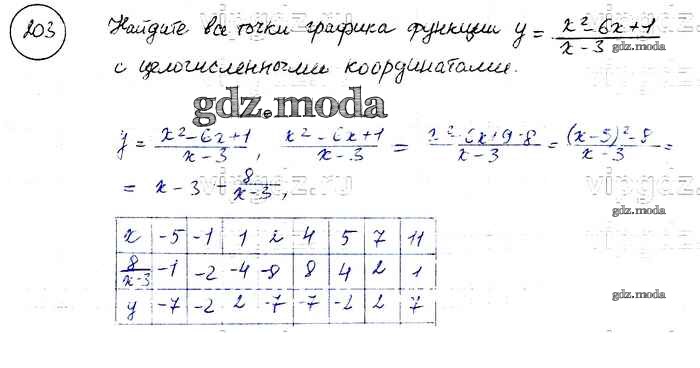 203 Найдите все точки графика функции y = (x² - 6x + 1)/(x - 3)
с целочисленными координатами.
gdz.moda
y = (x² - 6x + 1)/(x - 3), (x² - 6x + 1)/(x - 3) = (x² - 6x + 9 - 8)/(x - 3) = ((x - 3)² - 8)/(x - 3) =
= x - 3 - 8/(x - 3),
gdz.moda
x -5 -1 1 2 4 5 7 11
8/(x-3) -1 -2 -4 -8 8 4 2 1
y -7 -2 2 7 -7 -2 2 7
gdz.moda